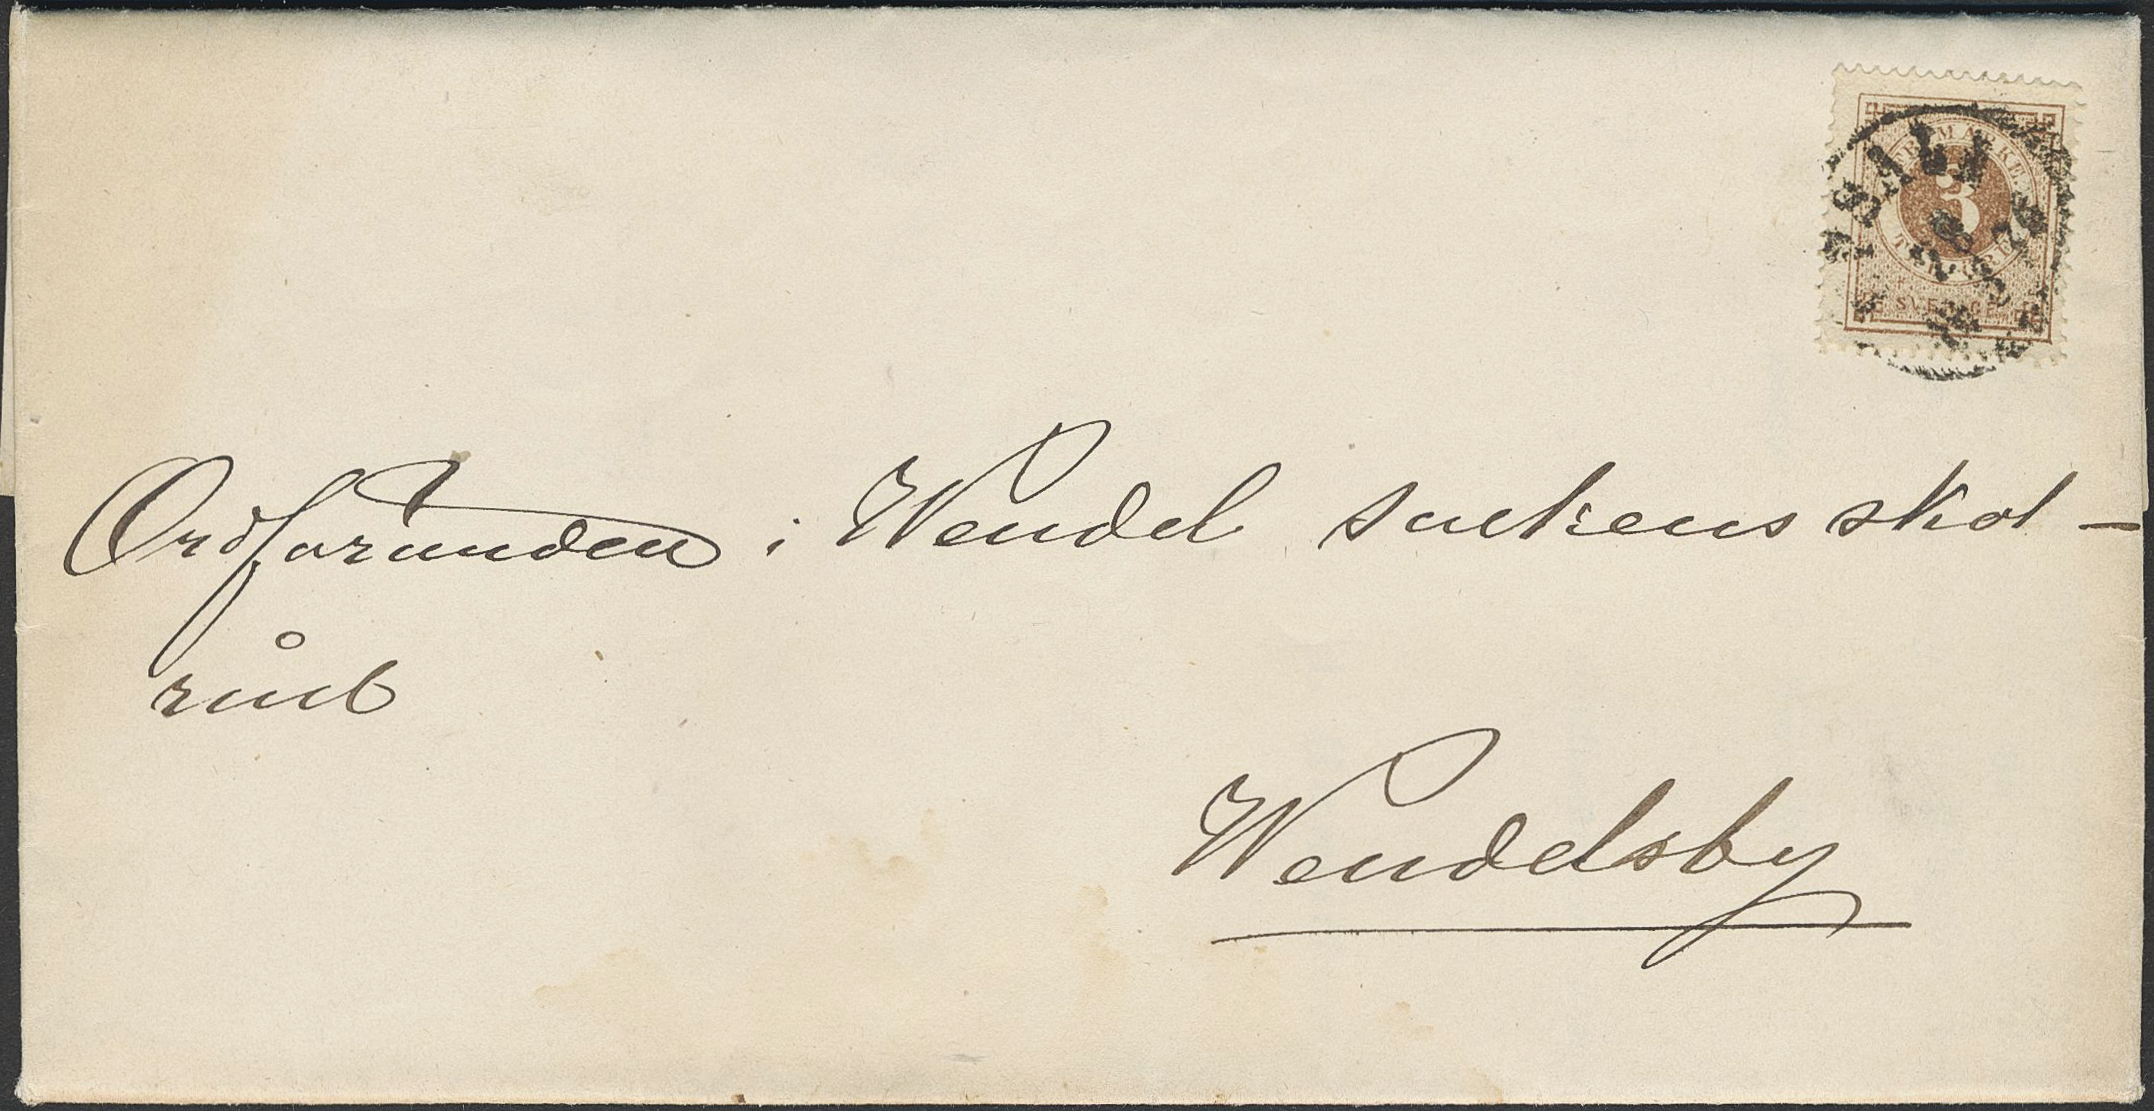 FRIMÄRKE
3
TRE ÖRE
SVERIGE
Ordföranden i Wendel sockens skol-
råd
Wendelsby